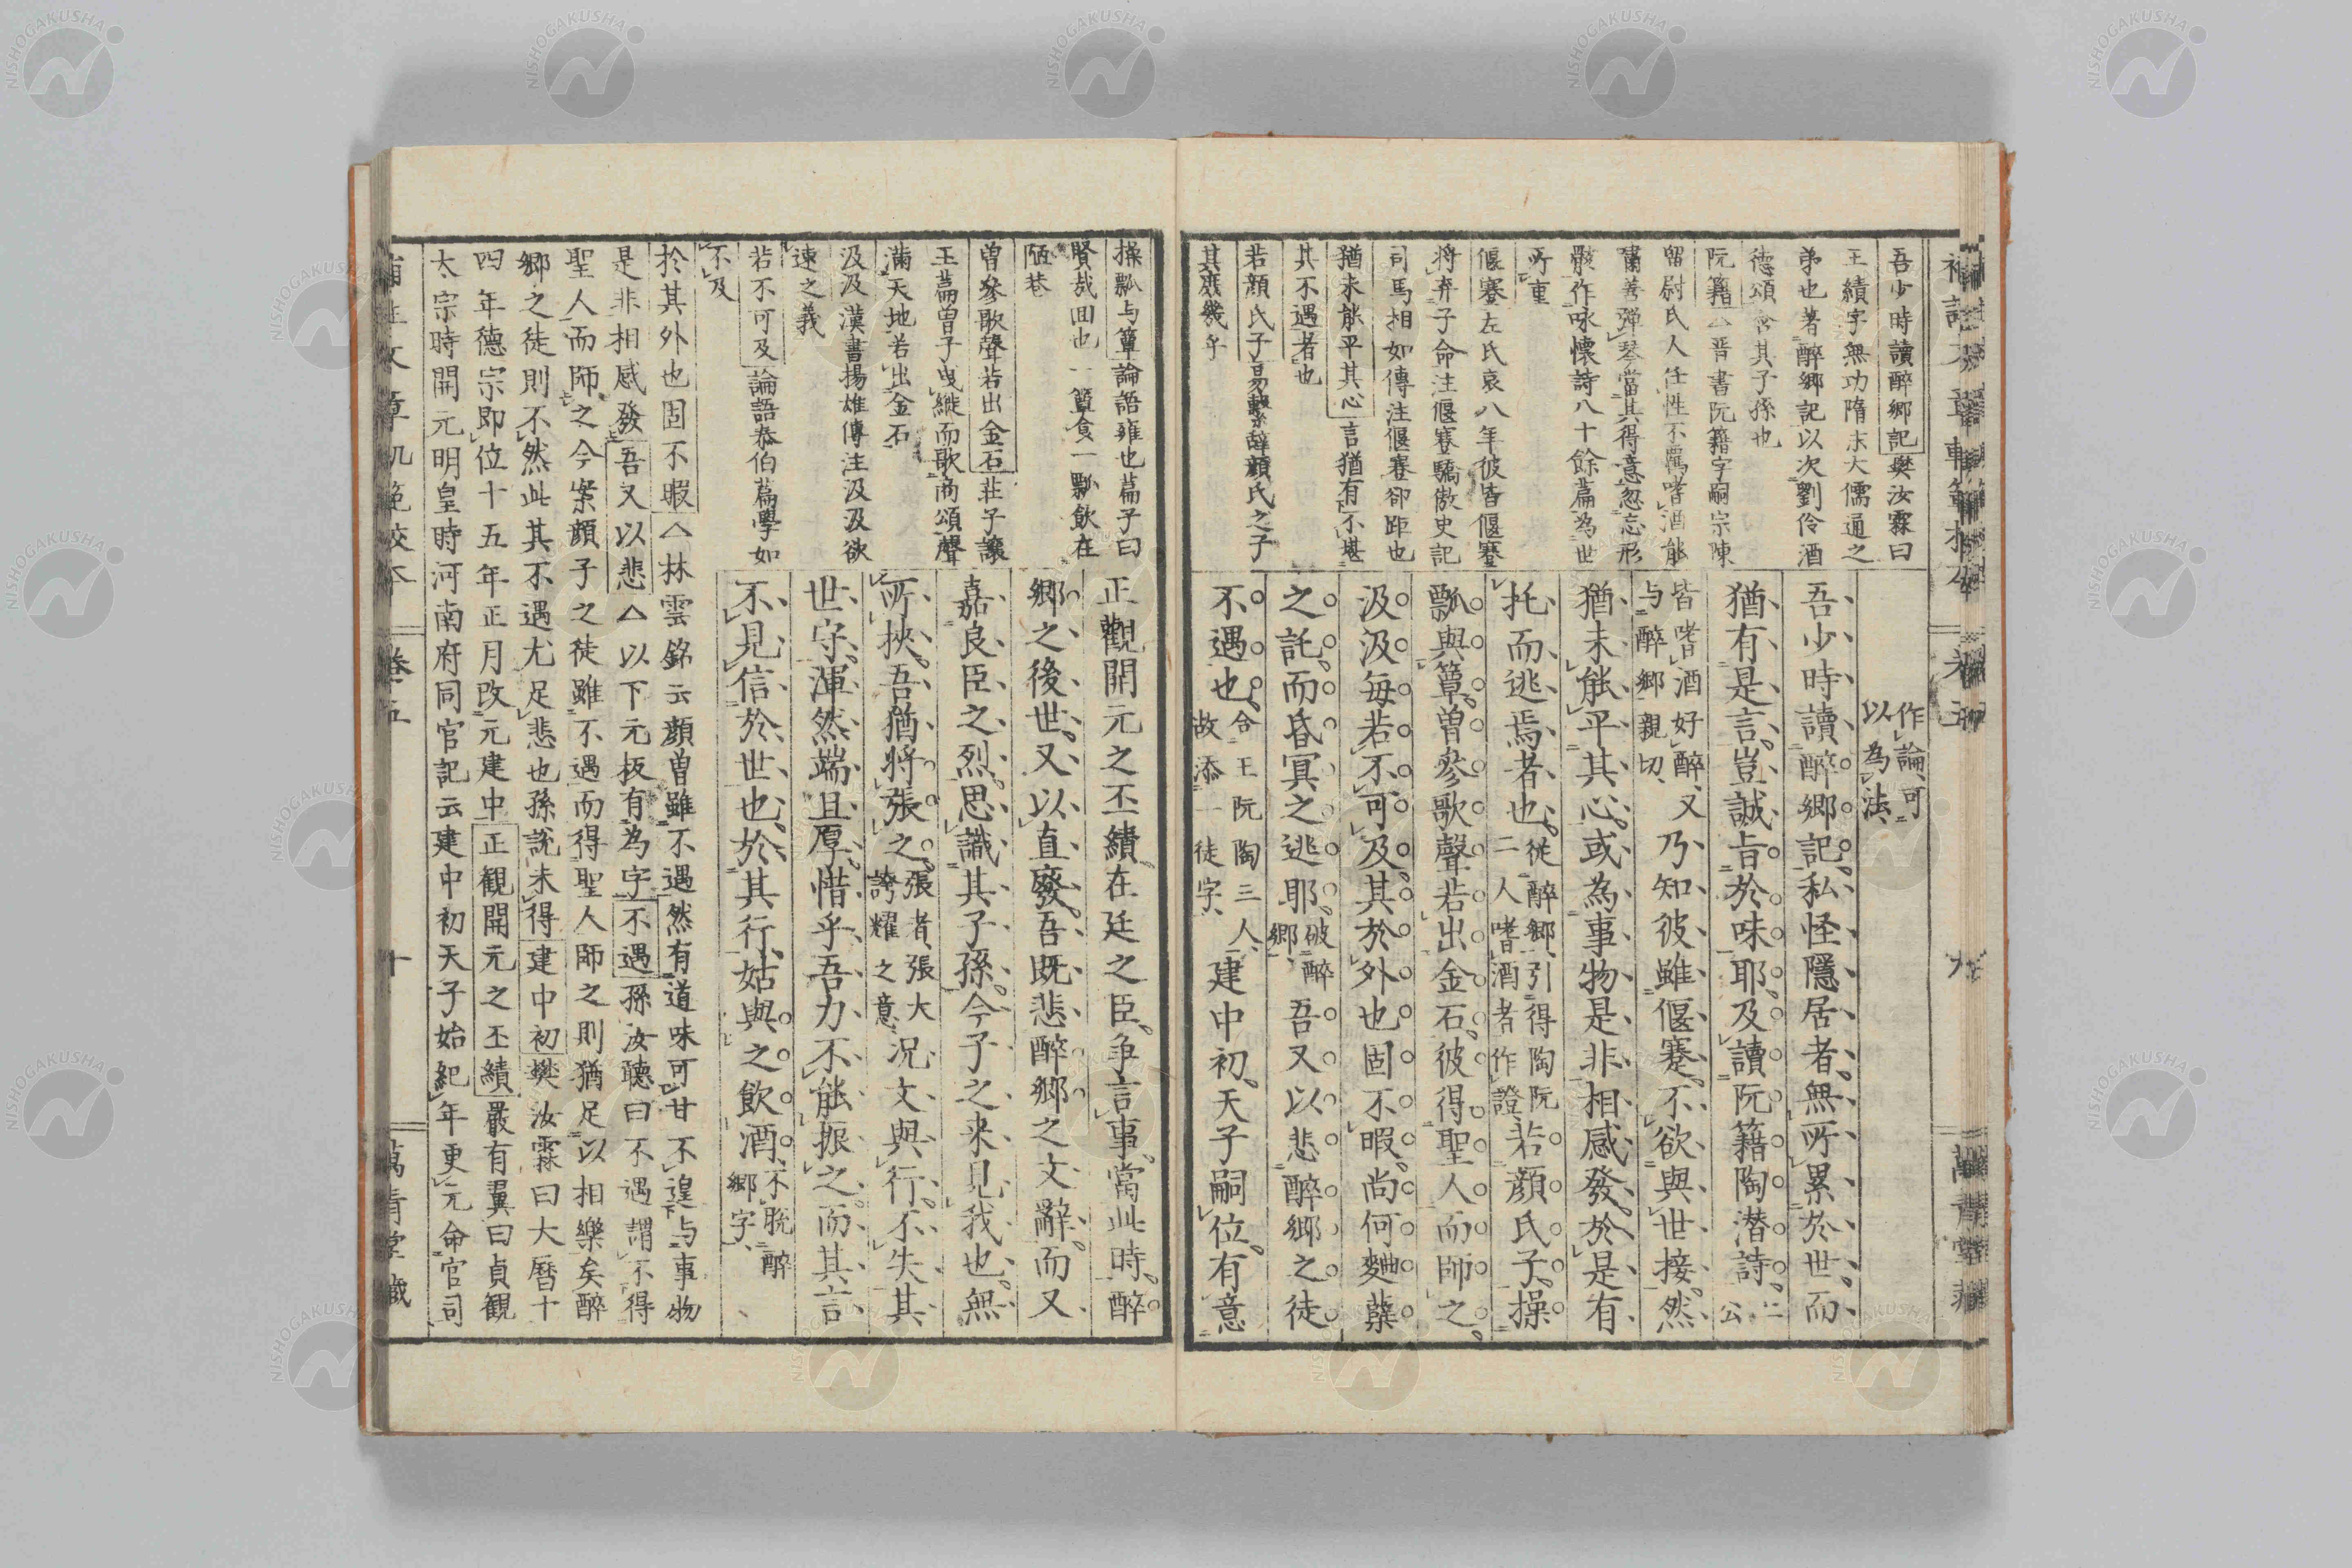 吾少時讀醉郷記樊汝霖曰
王績字無功隋末大儒通之
弟也著醉郷記以次劉伶酒
徳頌含其子孫也
阮籍△晋書阮籍字嗣宗陳
留尉氏人任性不羈嗜酒能
嘯善弾琴當其得意忽忘形
骸作咏懷詩八十餘篇為世
所重
偃蹇左氏哀八年彼皆偃蹇
将弃子命注偃蹇驕傲史記
司馬相如傳注偃蹇卻距也
猶未能平其心言猶有不堪
其不遇者也
若顔氏子易繋辭顔氏之子
其庶幾乎
作論可
以為法
吾少時讀醉郷記私怪隱居者無所累於世而
猶有是言豈誠旨於味耶及讀阮籍陶潜詩二公
皆嗜酒好醉又
与醉郷親切
乃知彼雖偃蹇不欲與世接然
猶未能平其心或為事物是非相感發於是有
托而逃焉者也從醉郷引得陶阮
二人嗜酒者作證
若顔氏子操
瓢與簞曽參歌聲若出金石彼得聖人而師之
汲汲毎若不可及其於外也固不暇尚何麯蘖
之託而昏冥之逃耶破醉
郷
吾又以悲醉郷之徒
不遇也合王阮陶三人
故添一徒字
建中初天子嗣位有意
卷五
九
操瓢与簞論語雍也篇子曰
賢哉回也一簞食一瓢飲在
陋巷
曽參歌聲若出金石荘子讓
王篇曽子曳縰而歌商頌聲
滿天地若出金石
汲汲漢書揚雄傳注汲汲欲
速之義
若不可及論語泰伯篇學如
不及
正觀開元之丕績在廷之臣争言事當此時醉
郷之後世又以直發吾既悲醉郷之文辭而又
嘉良臣之烈思識其子孫今子之来見我也無
所挾吾猶将張之張者張大
誇耀之意
况文與行不失其
世守渾然端且厚惜乎吾力不能振之而其言
不見信於世也於其行姑與之飲酒不脱醉
郷字
於其外也固不暇△林雲銘云顔曽雖不遇然有道味可甘不遑与事物
是非相感發吾又以悲△以下元板有為字不遇孫汝聴曰不遇謂不得
聖人而師之今案顔子之徒雖不遇而得聖人師之則猶足以相樂矣醉
郷之徒則不然此其不遇尤足悲也孫説未得建中初樊汝霖曰大暦十
四年徳宗即位十五年正月改元建中正観開元之丕績嚴有翼曰貞観
太宗時開元明皇時河南府同官記云建中初天子始紀年更元命官司
補註文章軌範校本
卷五
十
萬青堂藏